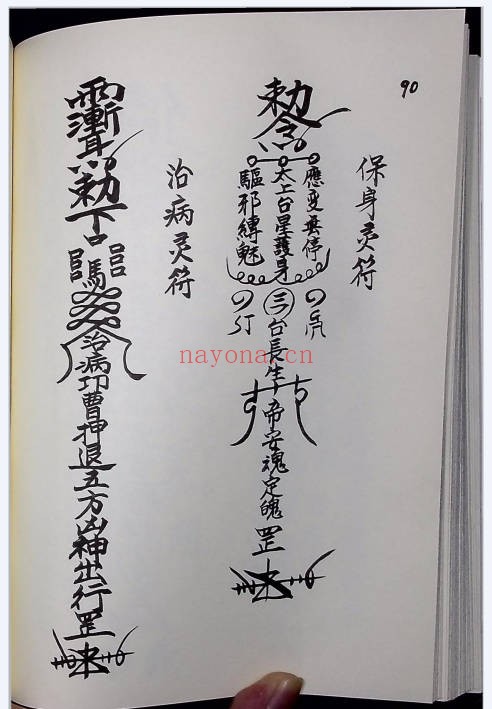 90
保身灵符
勅令
應变無停
太上台星護身
驅邪縛魅
三台長生帝安魂定魄罡
治病灵符
勅下
治病功曹押退五方凶神出行罡
nayona.cn